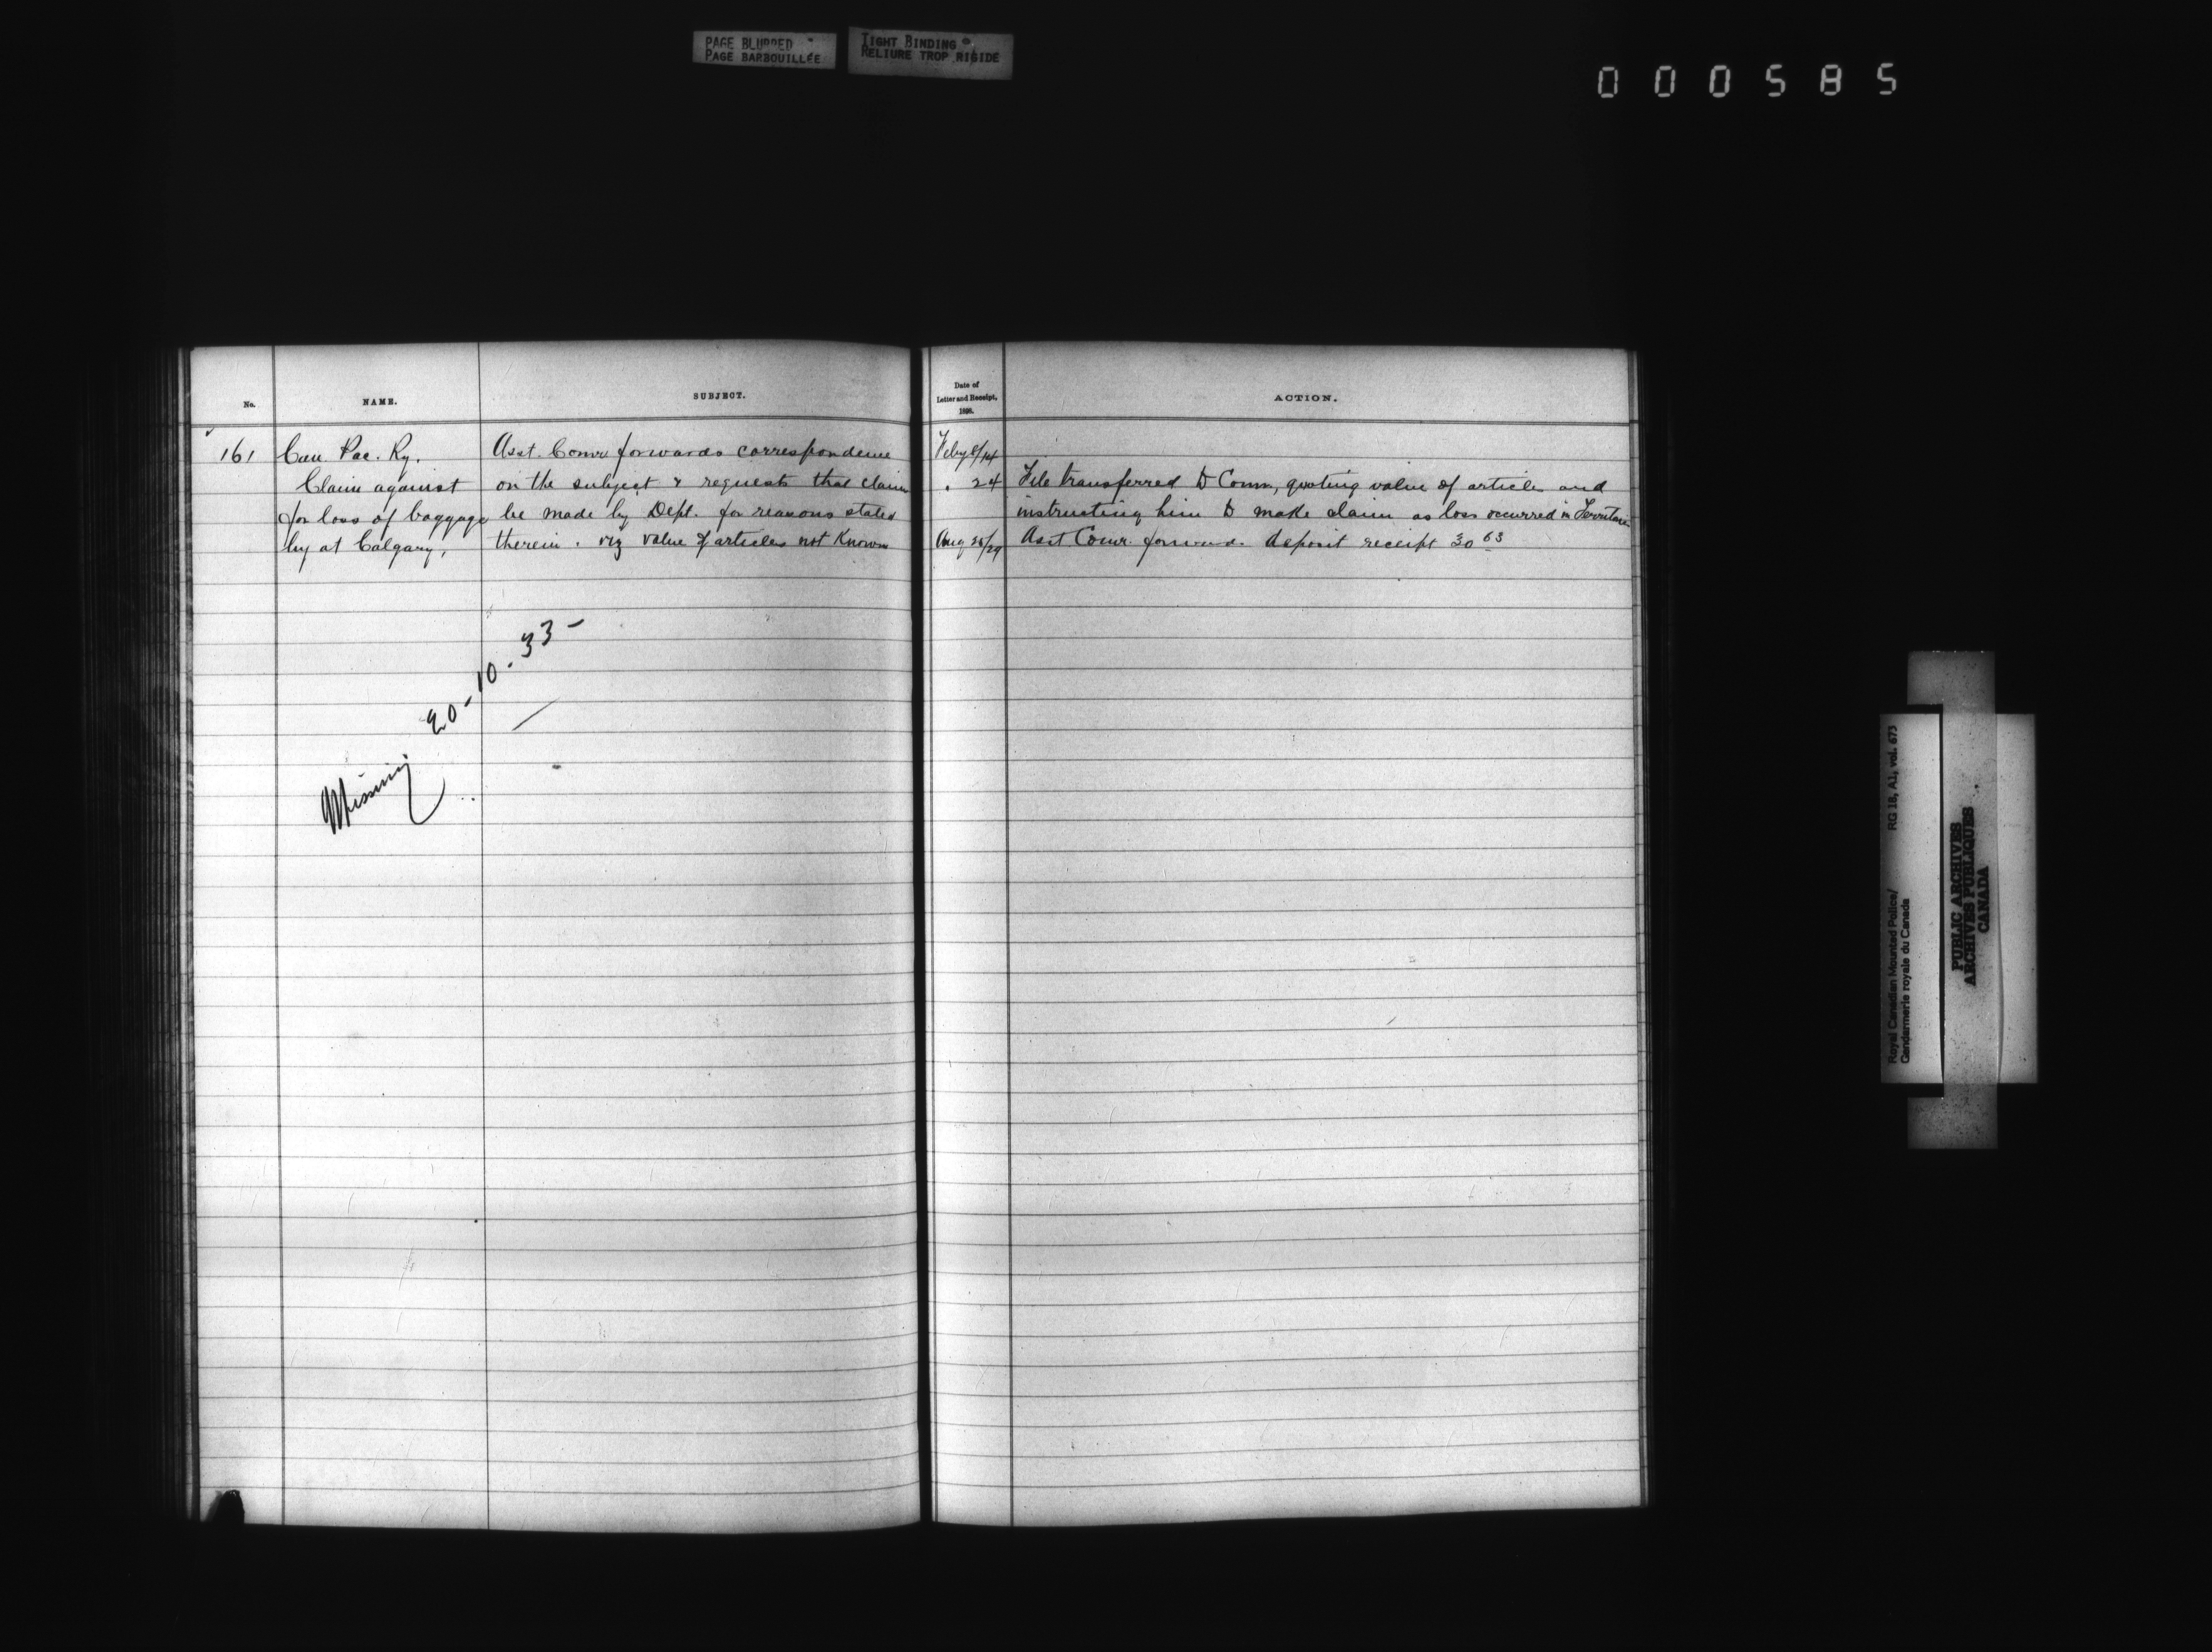 PAGE BLURRED
PAGE BARBOUILLÉE
TIGHT BINDING
RELIURE TROP RIGIDE
000585
No.
NAME.
SUBJECT.
Date of
Letter and Receipt,
1898.
ACTION.
161
Can. Pac. Ry.
Claim against
for loss of baggage
by at Calgary,
Asst. Comr forwards correspondence
on the subject & requests that claim
be made by Dept. for reasons stated
therein. viz value of articles not Known
Feby 8/14
. 24
File transferred to Comm, quoting value of articles and
instructing him to make claim as loss occurred in
Aug 25/29
Asst Comr. forwards deposit receipt 30 63
Missing 20-10-33-
Royal Canadian Mounted Police/
Gendarmerie royale du Canada
RG 18, A1, vol. 673
PUBLIC ARCHIVES
ARCHIVES PUBLIQUES
CANADA